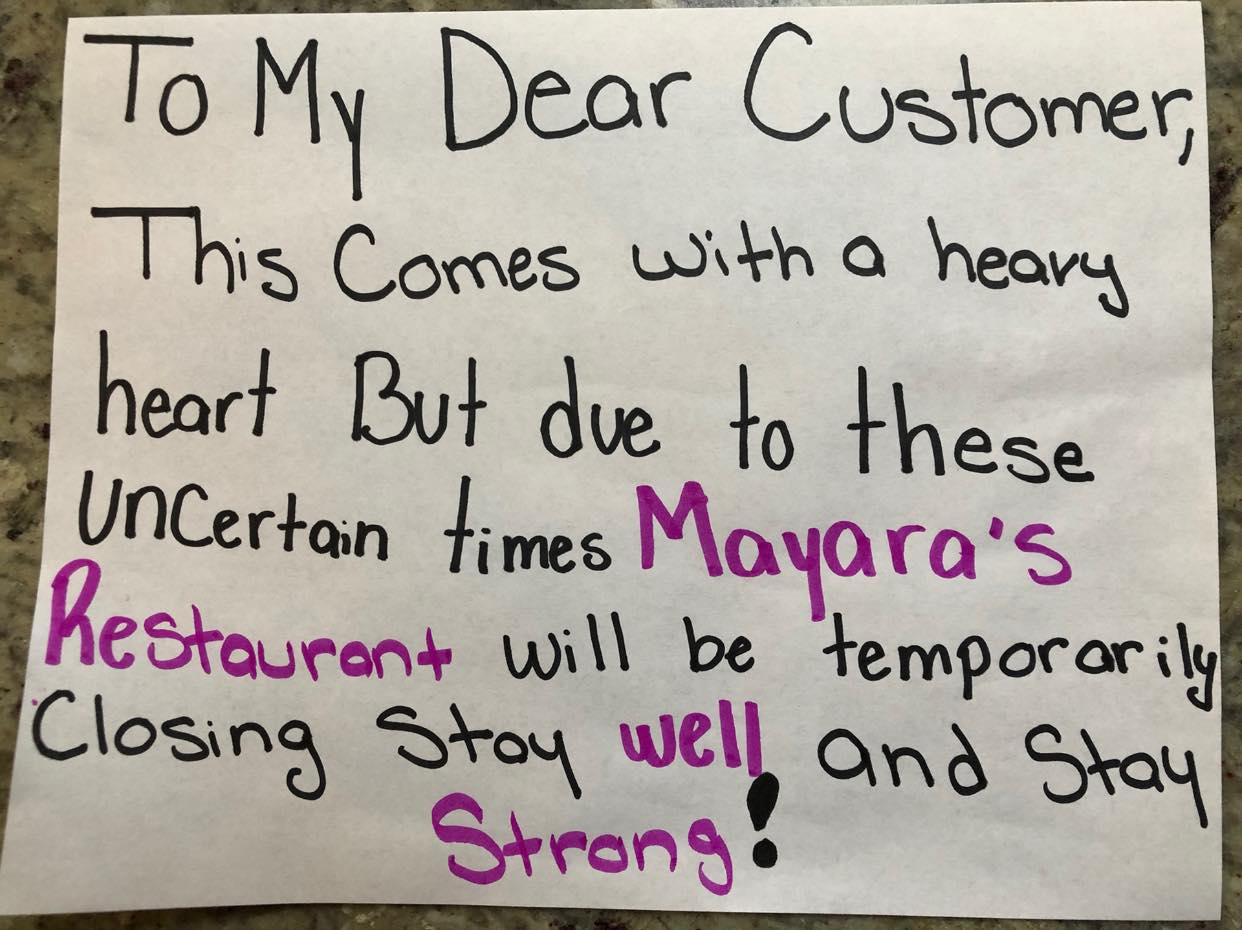 To My Dear Customer,
This Comes with a heavy
heart But due to these
uncertain times Mayara's
Restaurant will be temporarily
Closing Stay well and Stay
Strong!